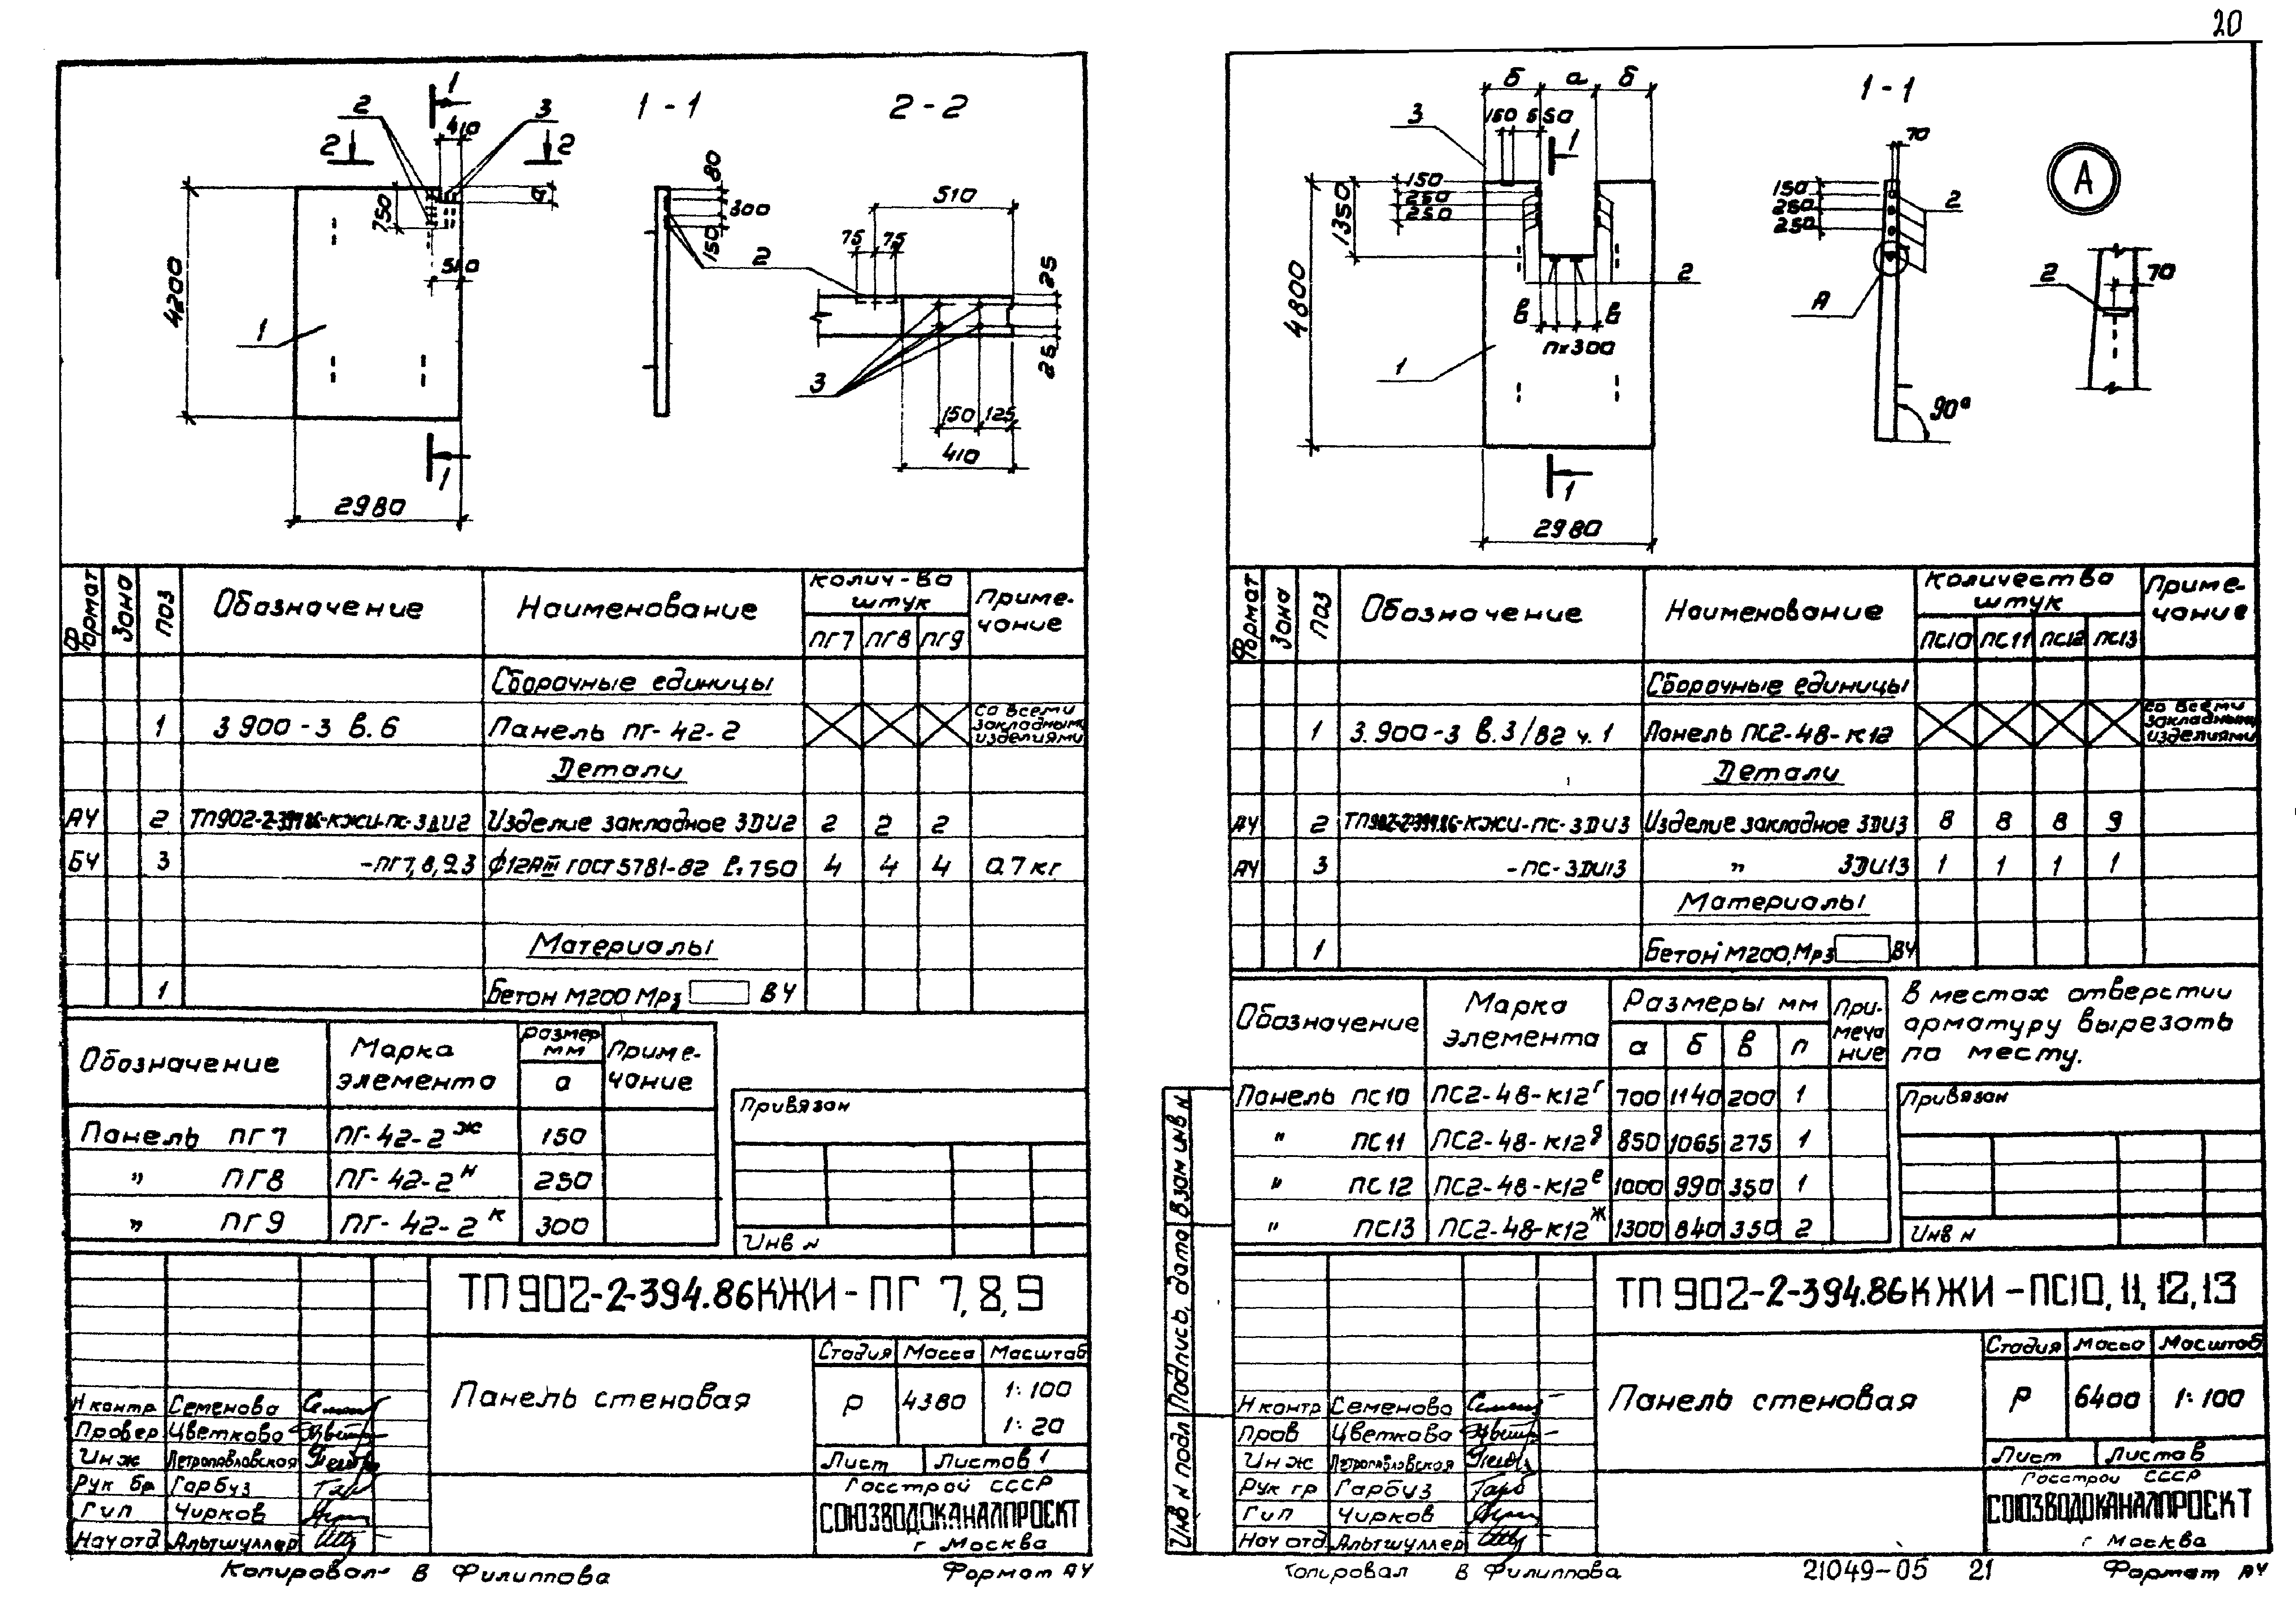 20
1
2
3
410
2
2
750
а
510
4200
1
1
2980
1-1
80
300
150
2
2-2
510
75 75
25
25
3
150 125
410
Формат
Зона
Поз
Обозначение
Наименование
Колич-во штук
ПГ7 ПГ8 ПГ9
Приме-
чание
Сборочные единицы
1 3 900-3 в.6 Панель ПГ-42-2 со всеми закладными изделиями
Детали
А4 2 ТП902-2-394.86-КЖИ-ПС-3ДИ2 Изделие закладное 3ДИ2 2 2 2
БЧ 3 -ПГ7,8,9.3 ф12АIII ГОСТ 5781-82 ℓ=750 4 4 4 0.7 кг
Материалы
1 Бетон М200 Мрз В4
Обозначение
Марка элемента
Размер мм
а
Приме-
чание
Панель ПГ7 ПГ-42-2ж 150
" ПГ8 ПГ-42-2н 250
" ПГ9 ПГ-42-2к 300
Привязан
Инв N
ТП 902-2-394.86 КЖИ - ПГ 7,8,9
Панель стеновая
Стадия Масса Масштаб
Р 4380 1:100
1:20
Лист Листов 1
Госстрой СССР
СОЮЗВОДОКАНАЛПРОЕКТ
г Москва
Н контр Семенова
Провер Цветкова
Инж Петропавловская
Рук бр Гарбуз
Гип Чирков
Нач отд Альтшуллер
Копировал В Филиппова
Формат А4
б а б
150 550
3
1
150
250
250
1350
4800
2
в в
п×300
1
1
2980
1-1
70
150
250
250
2
А
90°
А
2
70
Формат
Зона
Поз
Обозначение
Наименование
Количество штук
ПС10 ПС11 ПС12 ПС13
Приме-
чание
Сборочные единицы
1 3.900-3 в.3/82 ч.1 Панель ПС2-48-К12 со всеми закладными изделиями
Детали
А4 2 ТП902-2-394.86-КЖИ-ПС-3ДИ3 Изделие закладное 3ДИ3 8 8 8 9
А4 3 -ПС-3ДИ13 " 3ДИ13 1 1 1 1
Материалы
1 Бетон М200, Мрз В4
Обозначение
Марка элемента
Размеры мм
а б в п
При-
меча
ние
Панель ПС10 ПС2-48-К12г 700 1140 200 1
" ПС11 ПС2-48-К12д 850 1065 275 1
" ПС12 ПС2-48-К12е 1000 990 350 1
" ПС13 ПС2-48-К12ж 1300 840 350 2
В местах отверстии
арматуру вырезать
по месту.
Привязан
Инв N
Взам инв N
Подпись, дата
Инв N подл
ТП 902-2-394.86 КЖИ - ПС10, 11, 12, 13
Панель стеновая
Стадия Масса Масштаб
Р 6400 1:100
Лист Листов
Госстрой СССР
СОЮЗВОДОКАНАЛПРОЕКТ
г Москва
Н контр Семенова
Пров Цветкова
Инж Петропавловская
Рук гр Гарбуз
Гип Чирков
Нач отд Альтшуллер
Копировал В Филиппова
21049-05 21
Формат А4